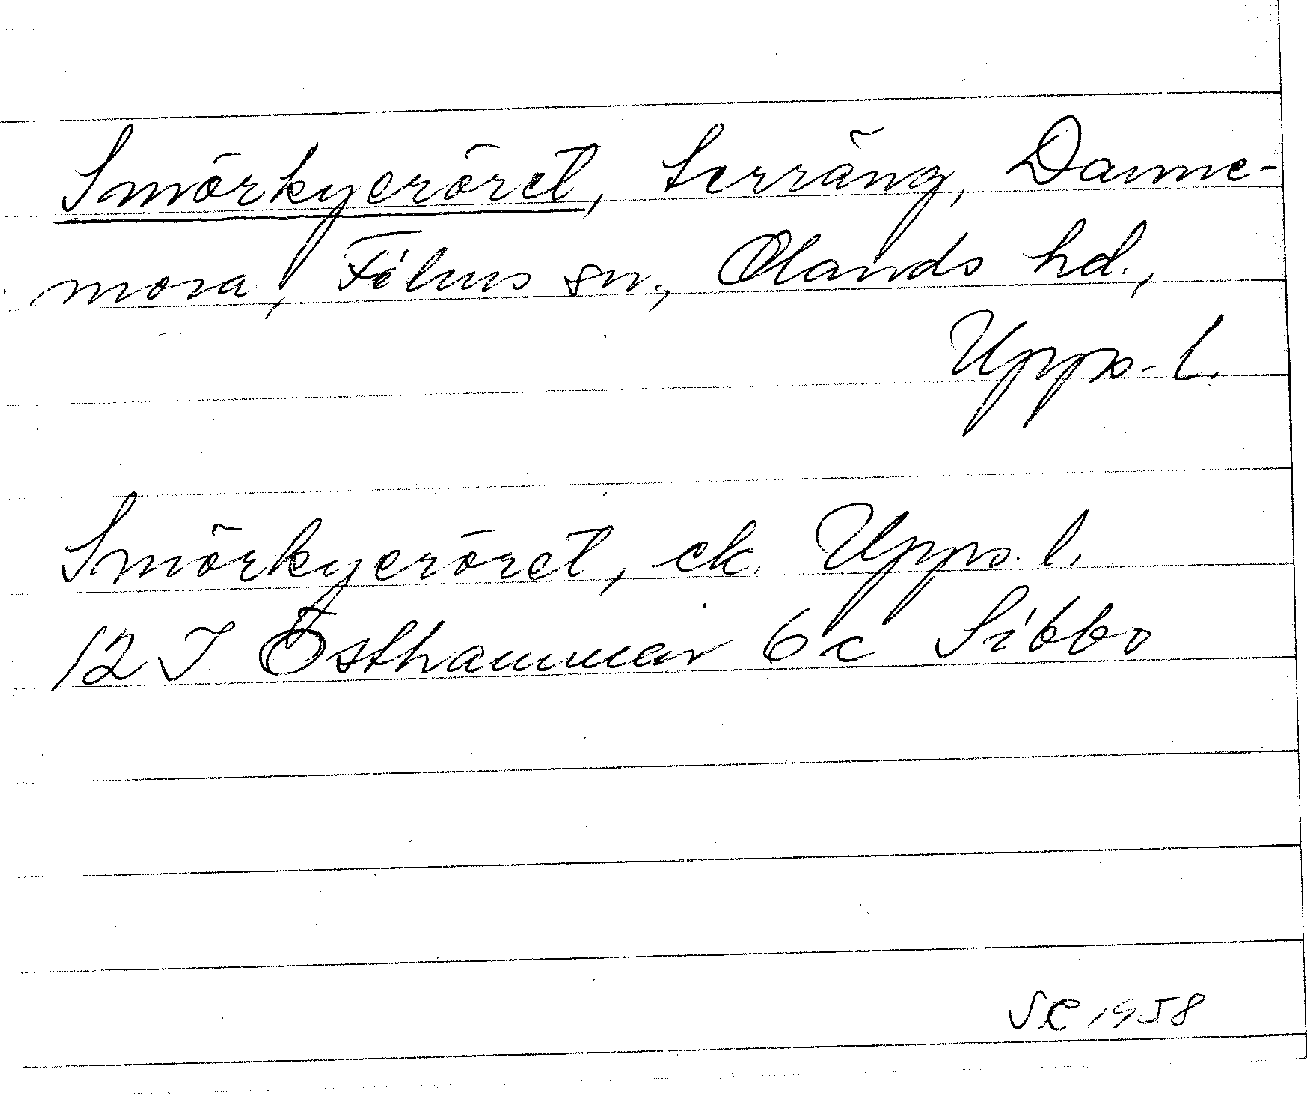 Smörkyeröret, terräng, Danne-
mora, Films sn., Olands hd.,
Upps. l.
Smörkyeröret, ek. Upps. l.
12 I Östhammar 6c Sibbo
SC 1958